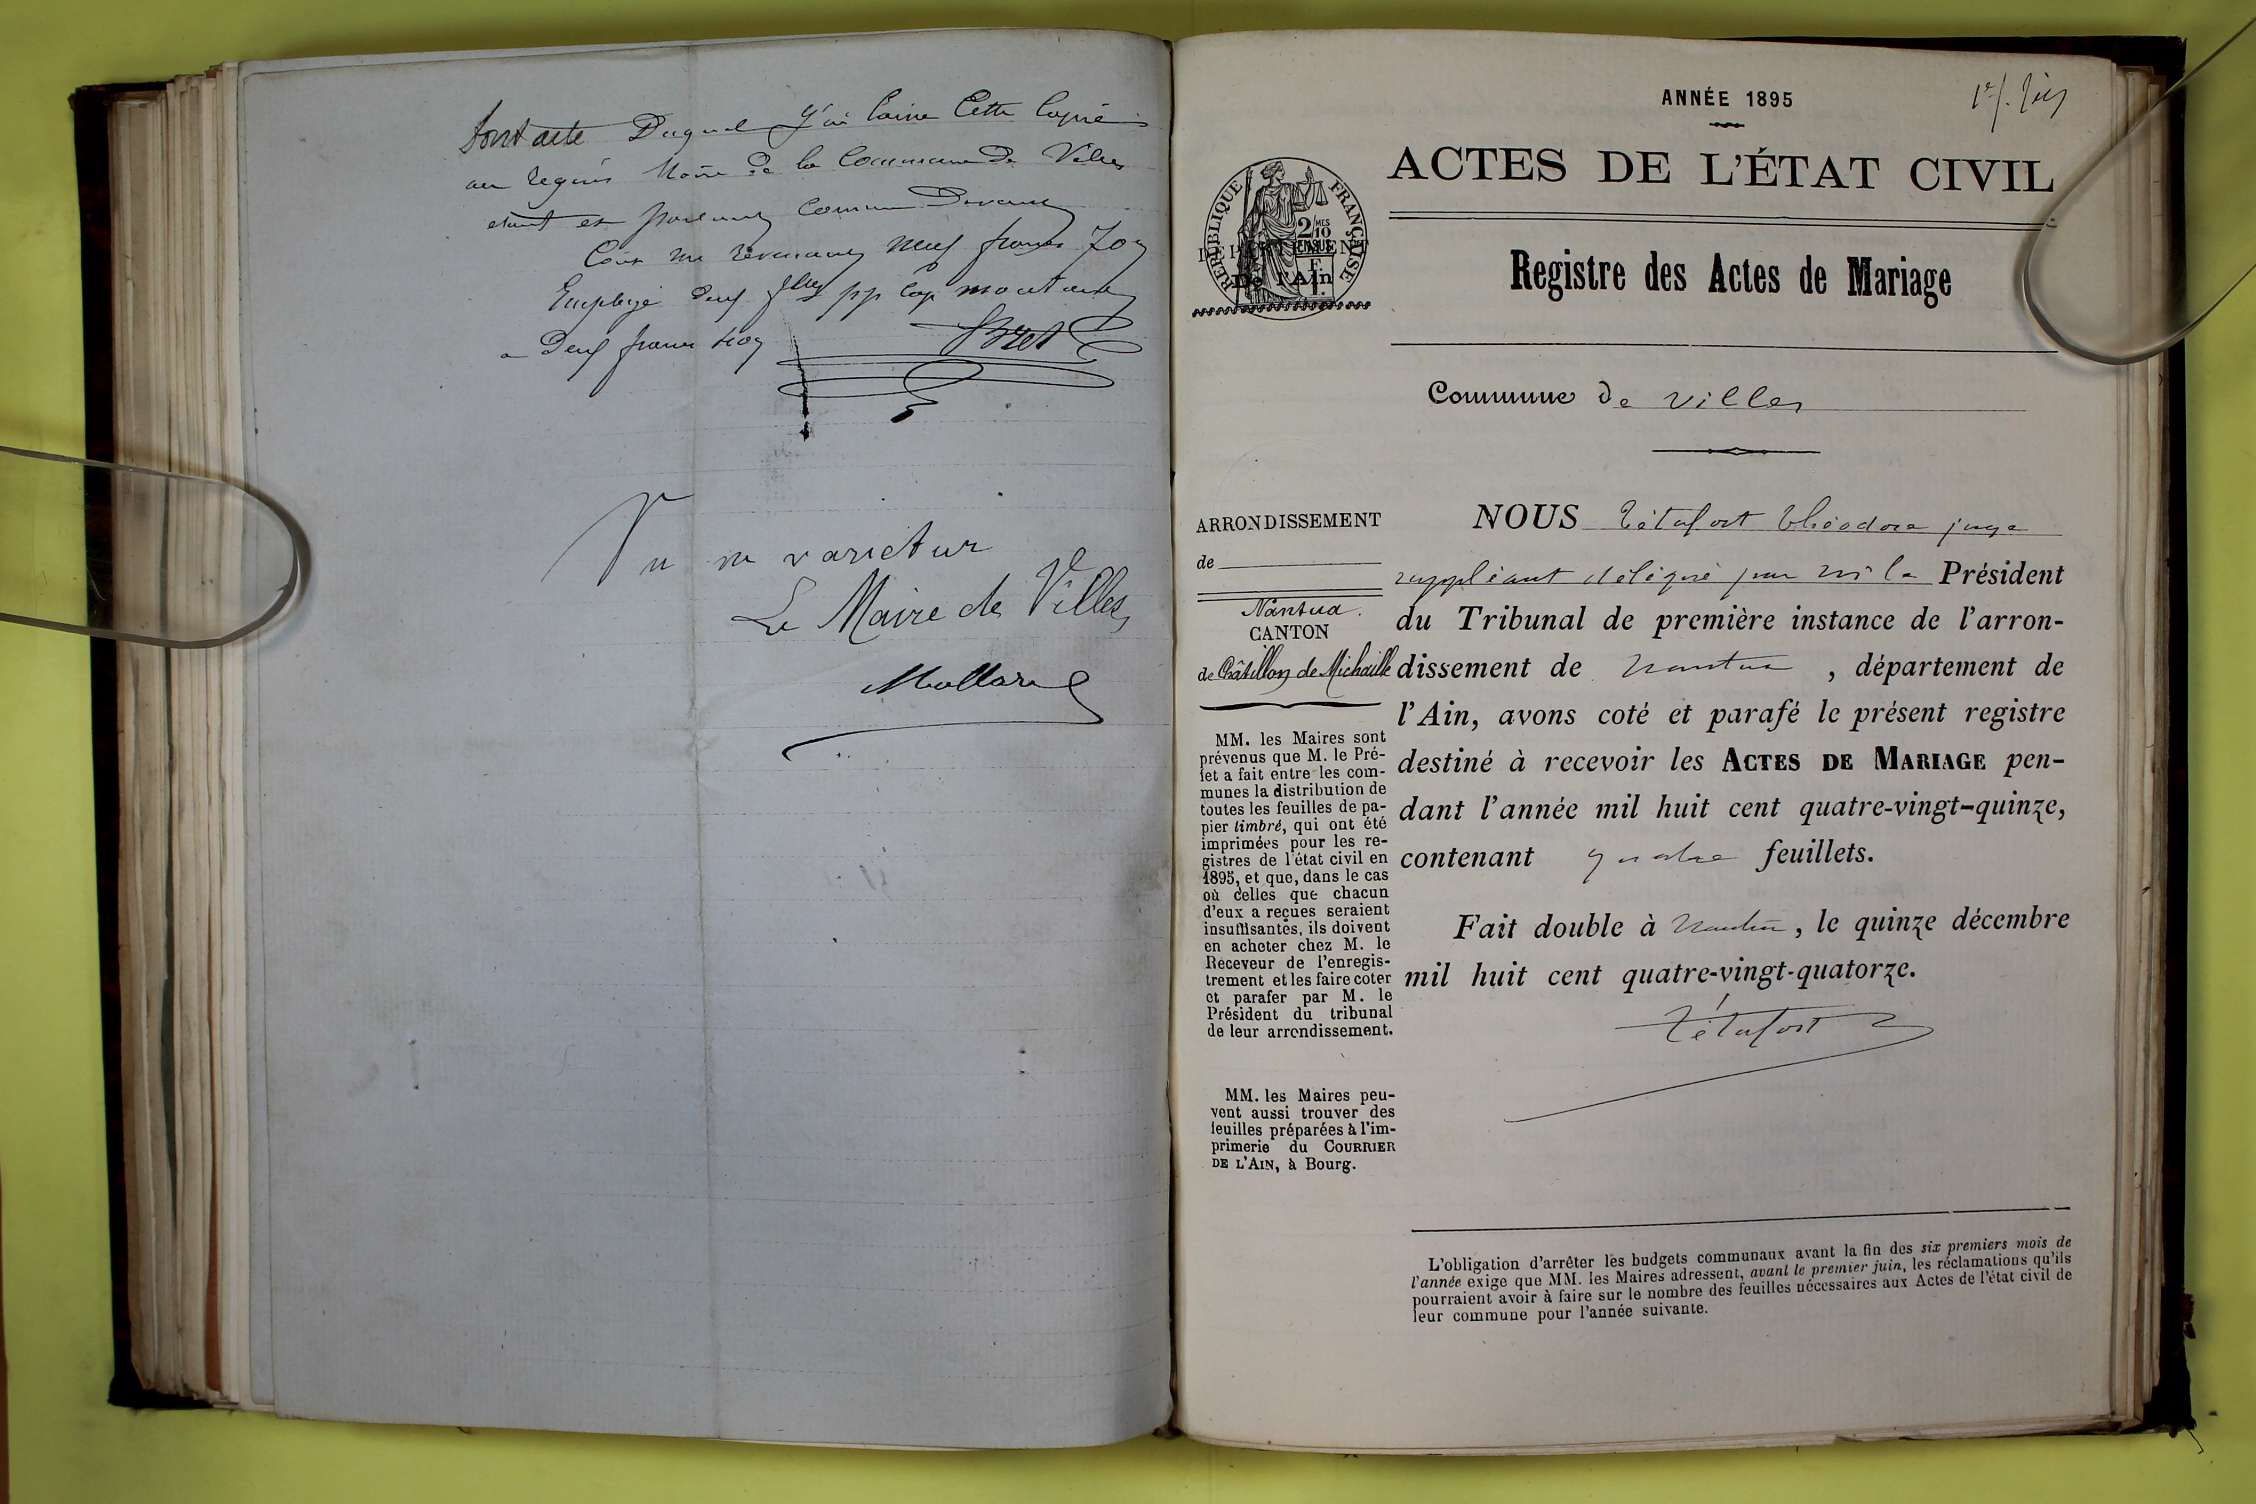 dont acte Duquel j'ai laissé cette copie
au Maire de la Commune de Villes
étant et parlant comme Devant
Coût neuf francs 70
Employé deux montant
a Deux francs
Bret
Vu ne varietur
Le Maire de Villes
ANNÉE 1895
ACTES DE L'ÉTAT CIVIL
RÉPUBLIQUE FRANÇAISE
2/10 MES
EN SUS
DÉPARTEMENT
De l'Ain
Registre des Actes de Mariage
Commune de Villes
ARRONDISSEMENT
de
Nantua.
CANTON
de Châtillon de Michaille
MM. les Maires sont
prévenus que M. le Pré-
fet a fait entre les com-
munes la distribution de
toutes les feuilles de pa-
pier timbré, qui ont été
imprimées pour les re-
gistres de l'état civil en
1895, et que, dans le cas
où celles que chacun
d'eux a reçues seraient
insuffisantes, ils doivent
en acheter chez M. le
Receveur de l'enregis-
trement et les faire coter
et parafer par M. le
Président du tribunal
de leur arrondissement.
MM. les Maires peu-
vent aussi trouver des
feuilles préparées à l'im-
primerie du COURRIER
DE L'AIN, à Bourg.
NOUS Tétafort Théodore juge
suppléant délégué par Mr le Président
du Tribunal de première instance de l'arron-
dissement de Nantua, département de
l'Ain, avons coté et parafé le présent registre
destiné à recevoir les ACTES DE MARIAGE pen-
dant l'année mil huit cent quatre-vingt-quinze,
contenant quatre feuillets.
Fait double à Nantua, le quinze décembre
mil huit cent quatre-vingt-quatorze.
Tétafort
L'obligation d'arrêter les budgets communaux avant la fin des six premiers mois de
l'année exige que MM. les Maires adressent, avant le premier juin, les réclamations qu'ils
pourraient avoir à faire sur le nombre des feuilles nécessaires aux Actes de l'état civil de
leur commune pour l'année suivante.